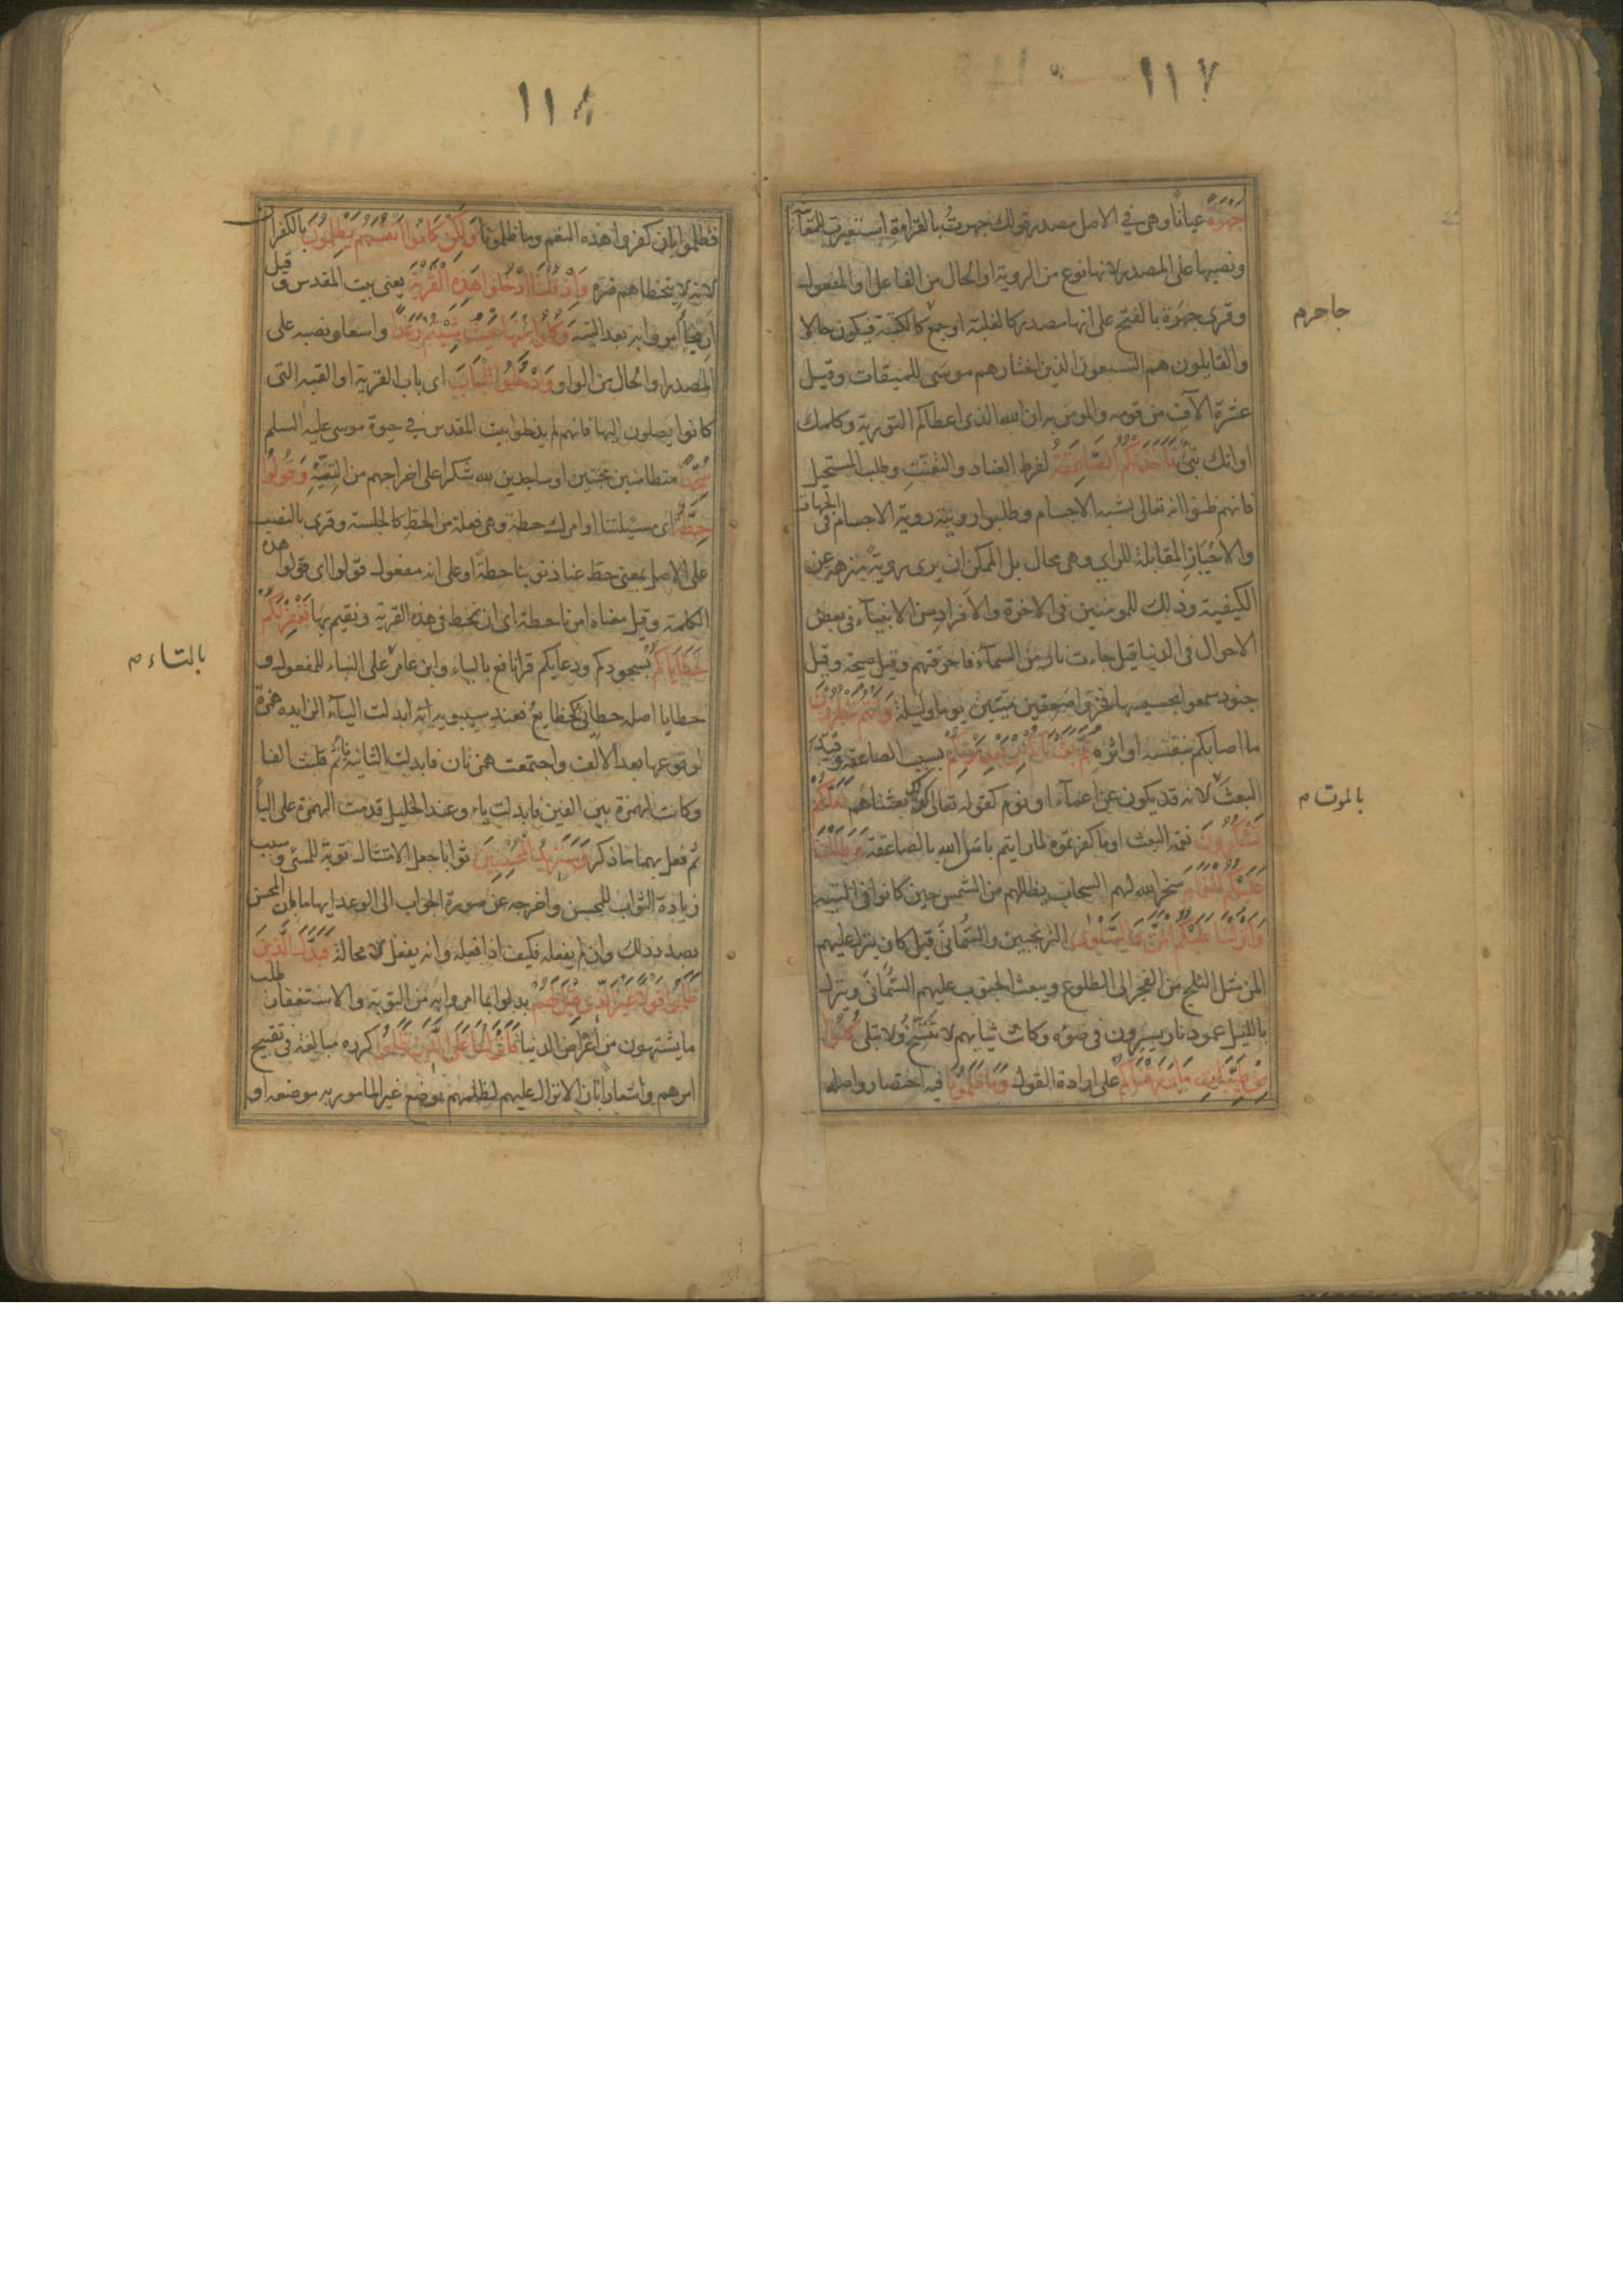 ١١٧
جَهْرَةً عيانا وهى في الاصل مصدر قولك جهرت بالقراءة استعيرت للمعاينة
ونصبها على المصدر لانها نوع من الروية او الحال من الفاعل او المفعول
وقرى جهرة بالفتح على انها مصدر كالغلبة او جمع كالكتبة فيكون حالا
جا حرم
والقايلون هم السبعون الذين اختارهم موسى للميقات وقيل
عشرة الآف من قومه والمومن به ان الله الذى اعطاكم التورية وكلمك
او انك نبى فَاَخَذَتْكُمُ الصَّاعِقَةُ لفرط العناد والتعنت وطلب المستحيل
فانهم ظنوا انه تعالى يشبه الاجسام وطلبوا رويته روية الاجسام فى الجهات
والاحياز المقابلة للراي وهى محال بل الممكن ان يرى روية منزهة عن
الكيفية وذلك للمومنين فى الاخرة والافراد من الانبياء فى بعض
الاحوال فى الدنيا قيل جاءت نار من السماء فاحرقتهم وقيل صيحة وقيل
جنود سمعوا بحسيسها فخروا صعقين ميتين يوما وليلة وَاَنْتُمْ تَنْظُرُونَ
ما اصابكم بنفسه او اثره ثُمَّ بَعَثْنَاكُمْ مِنْ بَعْدِ مَوْتِكُمْ بسبب الصاعقة وقيد
البعث لانه قد يكون عن اغماء او نوم كقوله تعالى ثم بعثناهم لَعَلَّكُمْ
بالموت م
تَشْكُرُونَ نعمة البعث او ما كفرتموه لما رايتم باس الله بالصاعقة وَظَلَّلْنَا
عَلَيْكُمُ الْغَمَامَ سخر الله لهم السحاب يظللهم من الشمس حين كانوا فى التيه
وَاَنْزَلْنَا عَلَيْكُمُ الْمَنَّ وَالسَّلْوٰى الترنجبين والسمانى قيل كان ينزل عليهم
المن مثل الثلج من الفجر الى الطلوع ويبعث الجنوب عليهم السمانى وينزل
بالليل عمود نار يسيرون فى ضوه وكانت ثيابهم لا تتسخ ولا تبلى كُلُوا
مِنْ طَيِّبَاتِ مَا رَزَقْنَاكُمْ على ارادة القول وَمَا ظَلَمُونَا فيه اختصار واصله
١١٨
فظلموا بان كفروا هذه النعم وما ظلمونا وَلٰكِنْ كَانُوا اَنْفُسَهُمْ يَظْلِمُونَ بالكفران
لانه لا يتخطاهم ضره وَاِذْ قُلْنَا ادْخُلُوا هَذِهِ الْقَرْيَةَ يعنى بيت المقدس و قيل
اريحا امروا به بعد التيه وَكُلُوا مِنْهَا حَيْثُ شِئْتُمْ رَغَدًا واسعا ونصبه على
المصدر او الحال من الواو وَادْخُلُوا الْبَابَ اى باب القرية او القبة التى
كانوا يصلون اليها فانهم لم يدخلوا بيت المقدس في حيوة موسى عليه السلم
سُجَّدًا متطامنين مخبتين او ساجدين لله شكرا على اخراجهم من التيه وَقُولُوا
حِطَّةٌ اى مسيلتنا او امرك حطة وهى فعلة من الحط كالجلسة وقرى بالنصب
على الاصل بمعنى حط عنا ذنوبنا حطة او على انه مفعول قولوا اى قولوا هذه
الكلمة وقيل معناه امرنا حطة اى ان نحط فى هذه القرية ونقيم بها نَغْفِرْ لَكُمْ
خَطَايَاكُمْ بسجودكم ودعايكم قرا نافع بالياء وابن عامر على البناء للمفعول و
بالتاء م
خطايا اصله خطايئ كخطايع فعند سيبويه انه ابدلت الياء الزايده همزة
لوقوعها بعد الالف واجتمعت همزتان فابدلت الثانية ياء ثم قلبت الفا
وكانت الهمزة بين الفين فابدلت ياء وعند الخليل قدمت الهمزة على الياء
ثم فعل بهما ما ذكر وَسَنَزِيدُ الْمُحْسِنِينَ ثوابا جعل الامتثال توبة للمسئ وسبب
زيادة الثواب للمحسن واخرجه عن صورة الجواب الى الوعد ايهاما بان المحسن
بصدد ذلك وان لم يفعله فكيف اذا فعله وانه يفعل لا محالة فَبَدَّلَ الَّذِينَ
ظَلَمُوا قَوْلًا غَيْرَ الَّذِى قِيلَ لَهُمْ بدلوا بما امروا به من التوبة والاستغفار طلب
ما يشتهون من اعراض الدنيا فَاَنْزَلْنَا عَلَى الَّذِينَ ظَلَمُوا كرره مبالغة فى تقبيح
امرهم واشعارا بان الانزال عليهم لظلمهم بوضع غير المامور به موضعه او